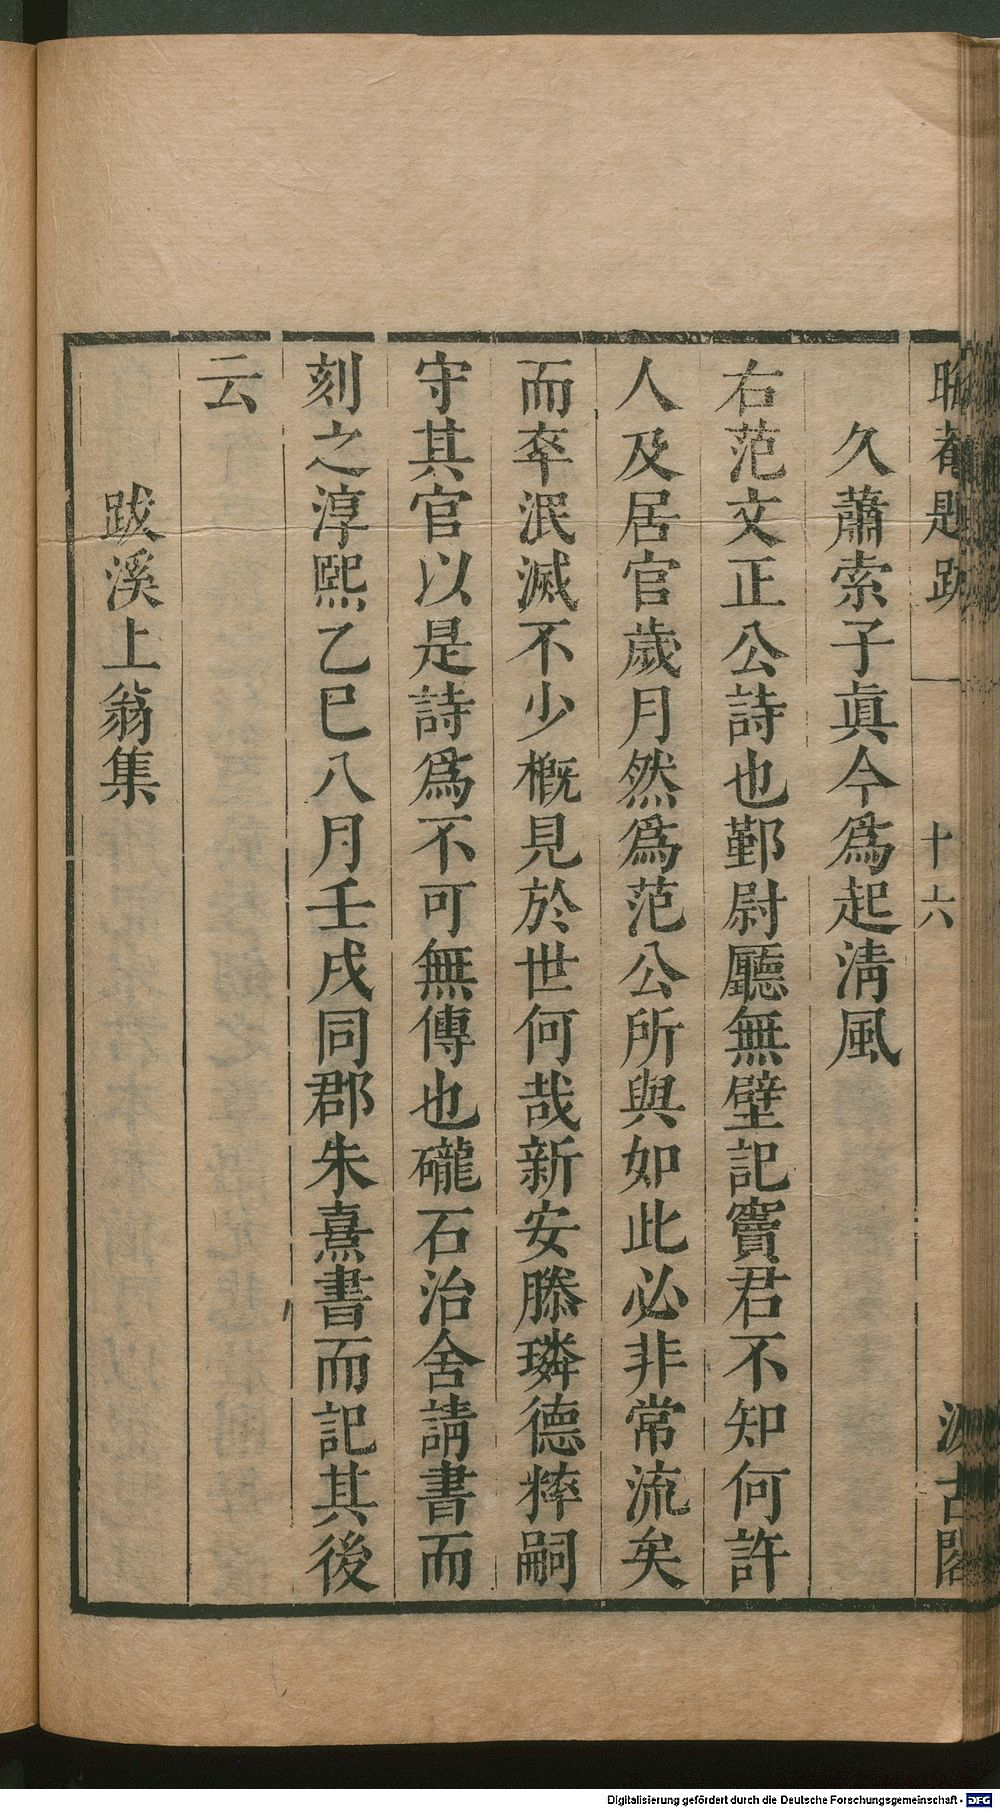 晦菴題跋 一 十六 汲古閣
久蕭索子真今為起清風
右范文正公詩也鄞尉廳無壁記竇君不知何許
人及居官歲月然為范公所與如此必非常流矣
而卒泯滅不少槪見於世何哉新安滕璘德粹嗣
守其官以是詩為不可無傳也礲石治舍請書而
刻之淳熙乙巳八月壬戌同郡朱熹書而記其後
云
跋溪上翁集
Digitalisierung gefördert durch die Deutsche Forschungsgemeinschaft - DFG